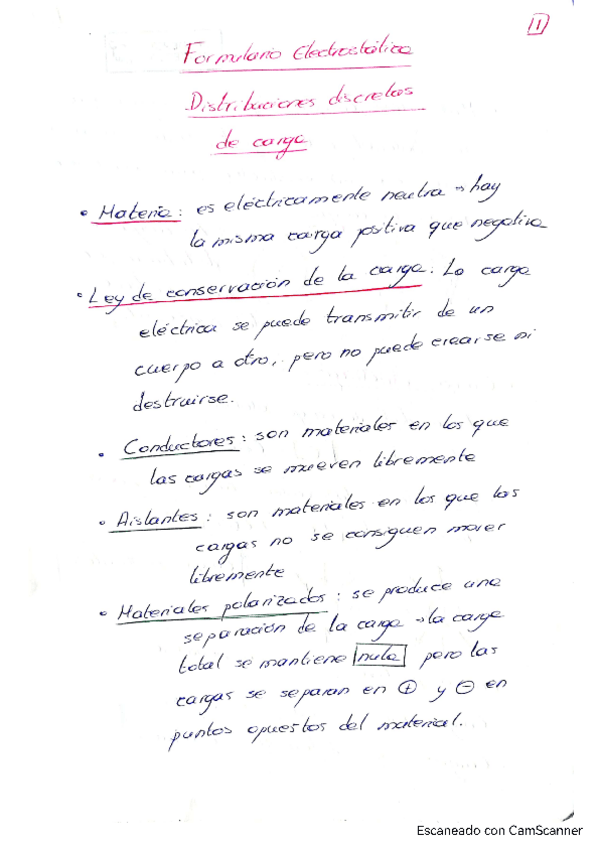 11
Formulario Electrostática
Distribuciones discretas
de carga
• Materia: es eléctricamente neutra → hay
la misma carga positiva que negativa
• Ley de conservación de la carga: La carga
eléctrica se puede transmitir de un
cuerpo a otro, pero no puede crearse ni
destruirse.
• Conductores: son materiales en los que
las cargas se mueven libremente
• Aislantes: son materiales en los que las
cargas no se consiguen mover
libremente
• Materiales polarizados: se produce una
separación de la carga → la carga
total se mantiene nula pero las
cargas se separan en ⊕ y ⊖ en
puntos opuestos del material.
Escaneado con CamScanner